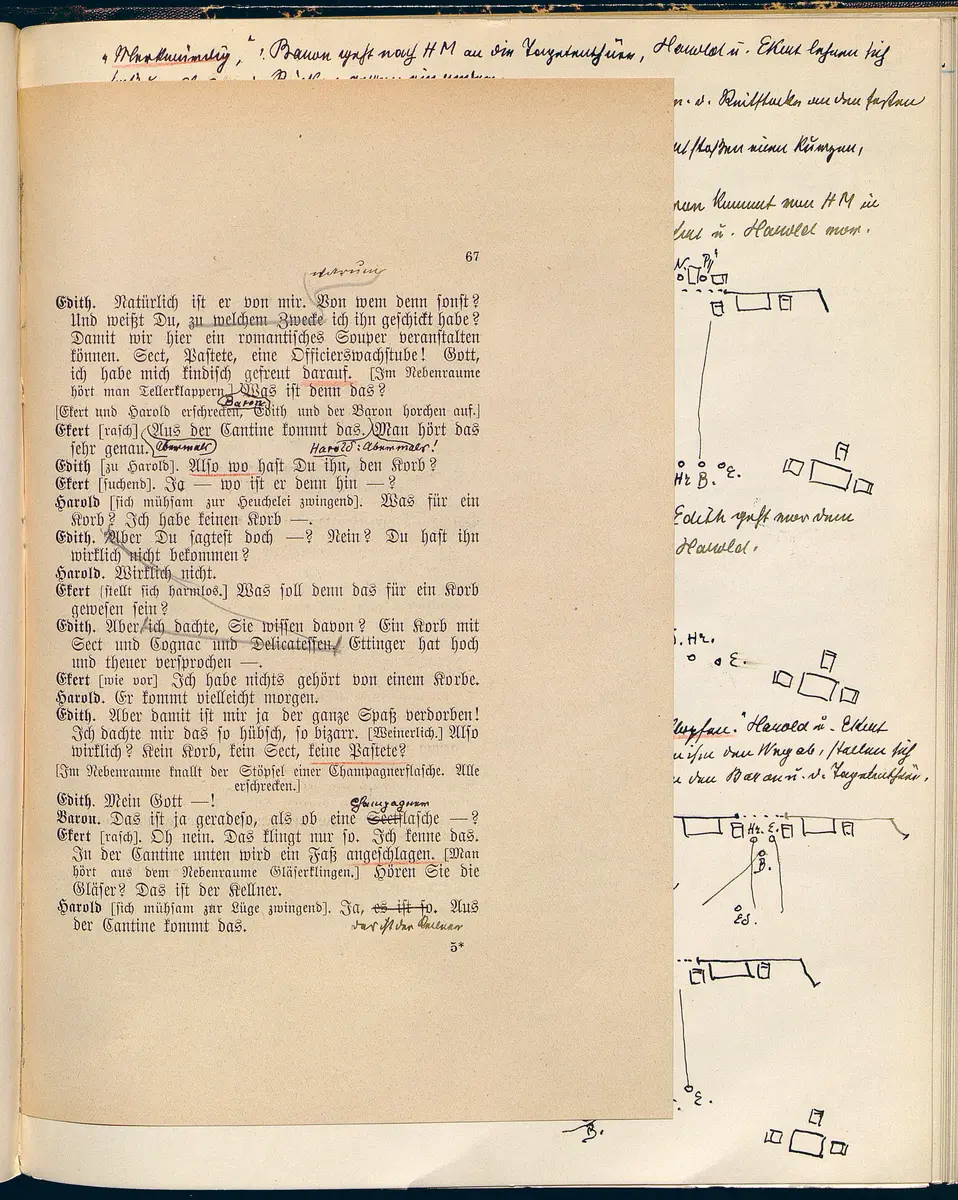 „Merkwürdig", ! Baron geht nach HM an die Tapetenthür, Harold u. Ekert lehnen sich
u. d. Reitstocks an den festen
einen kurzen,
kommt von HM in
u. Harold vor.
67
warum
Edith. Natürlich ist er von mir. Von wem denn sonst?
Und weißt Du, zu welchem Zwecke ich ihn geschickt habe?
Damit wir hier ein romantisches Souper veranstalten
können. Sect, Pastete, eine Officierswachstube! Gott,
ich habe mich kindisch gefreut darauf. [Im Nebenraume
hört man Tellerklappern.] Was ist denn das?
Baron
[Ekert und Harold erschrecken, Edith und der Baron horchen auf.]
Ekert [rasch]. Aus der Cantine kommt das. Man hört das
sehr genau. Abermals Harold: Abermals!
Edith [zu Harold]. Also wo hast Du ihn, den Korb?
Ekert [suchend]. Ja — wo ist er denn hin —?
Harold [sich mühsam zur Heuchelei zwingend]. Was für ein
Korb? Ich habe keinen Korb —.
Edith. Aber Du sagtest doch —? Nein? Du hast ihn
wirklich nicht bekommen?
Harold. Wirklich nicht.
Ekert [stellt sich harmlos.] Was soll denn das für ein Korb
gewesen sein?
Edith. Aber ich dachte, Sie wissen davon? Ein Korb mit
Sect und Cognac und Delicatessen. Ettinger hat hoch
und theuer versprochen —.
Ekert [wie vor] Ich habe nichts gehört von einem Korbe.
Harold. Er kommt vielleicht morgen.
Edith. Aber damit ist mir ja der ganze Spaß verdorben!
Ich dachte mir das so hübsch, so bizarr. [Weinerlich.] Also
wirklich? Kein Korb, kein Sect, keine Pastete?
[Im Nebenraume knallt der Stöpsel einer Champagnerflasche. Alle
erschrecken.]
Edith. Mein Gott —!
Champagner
Baron. Das ist ja geradeso, als ob eine Sectflasche —?
Ekert [rasch]. Oh nein. Das klingt nur so. Ich kenne das.
In der Cantine unten wird ein Faß angeschlagen. [Man
hört aus dem Nebenraume Gläserklingen.] Hören Sie die
Gläser? Das ist der Kellner.
Harold [sich mühsam zur Lüge zwingend]. Ja, es ist so. Aus
der Cantine kommt das. das ist der Kellner
5*
N.
Hr B. E.
Edith geht vor dem
Harold.
Hr.
E.
Harold u. Ekert
ihm den Weg ab, stellen sich
den Baron u. d. Tapetenthür.
Hr. E.
B.
Ed.
E.
B.